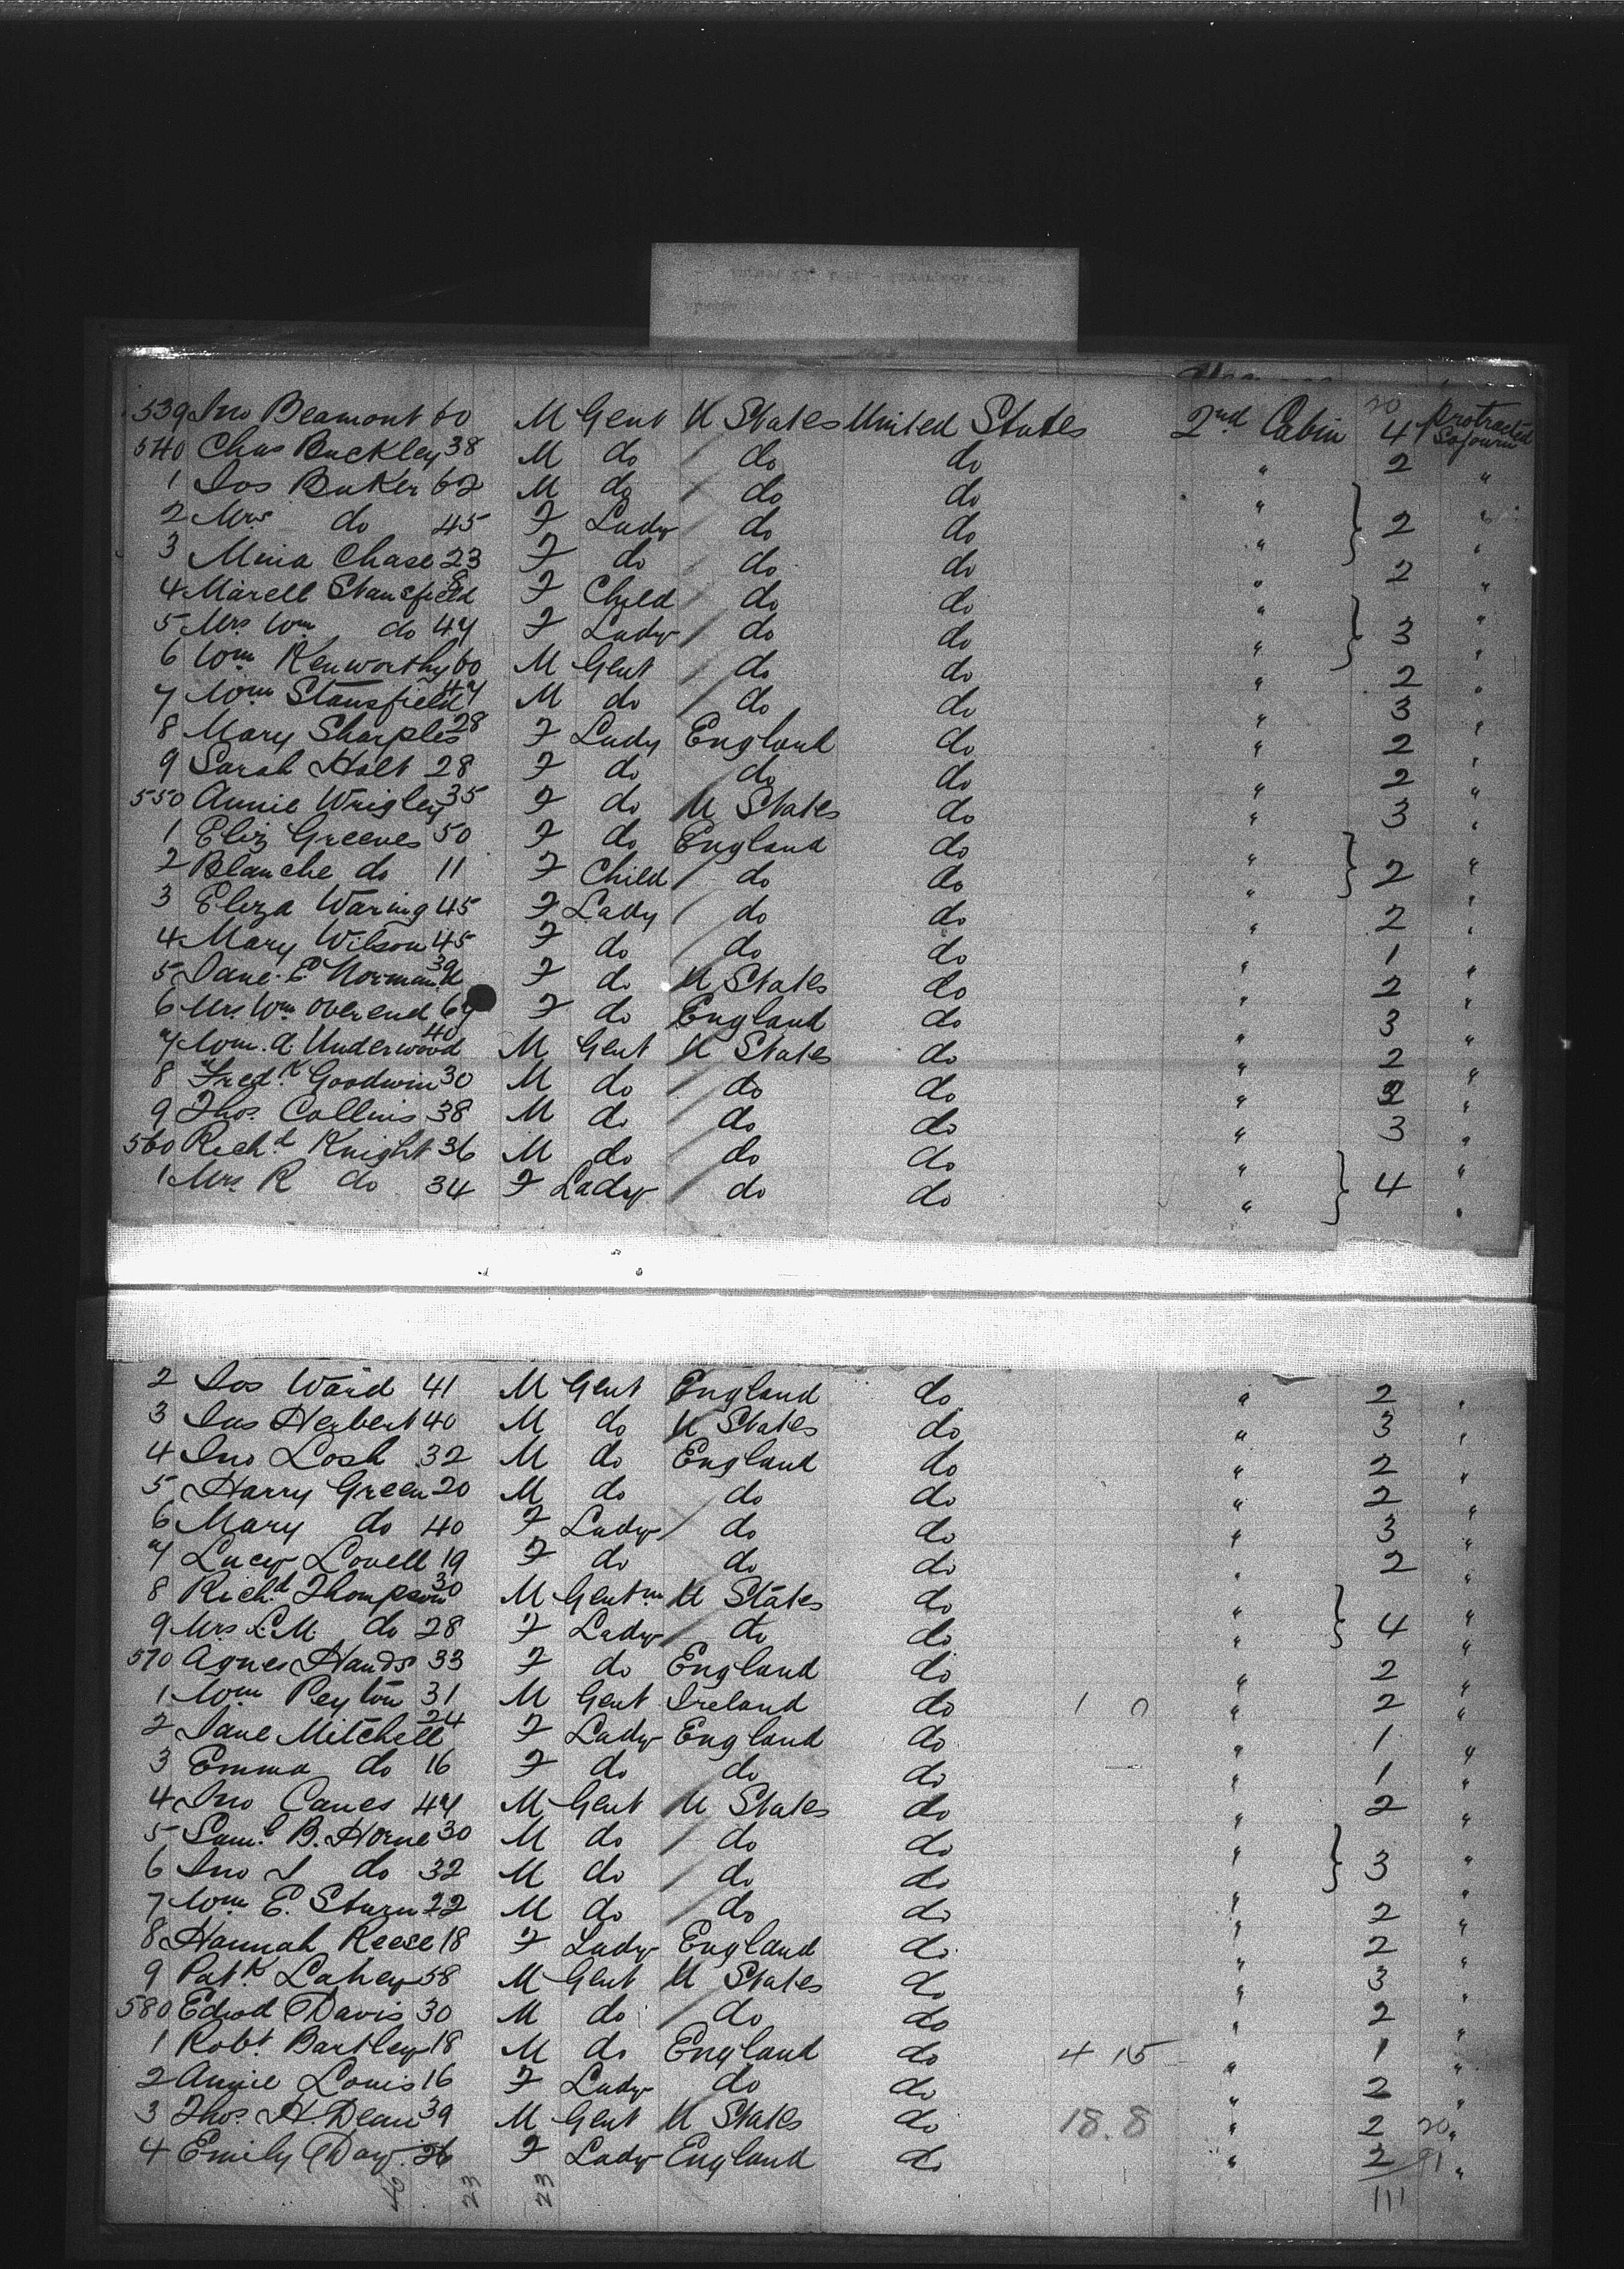 539 Jno Beamont 60 M Gent U States United States 2nd Cabin 20 4 Protracted Sojourn
540 Chas Buckley 38 M do / do do " 2 "
1 Jos Baker 62 M do / do do " "
2 Mrs do 45 F Lady do do " } 2 "
3 Mina Chase 23 F do / do do " 2 "
4 Marell Stansfield 8 F Child do do " "
5 Mrs Wm do 47 F Lady / do do " } 3 "
6 Wm Kenworthy 60 M Gent / do do " 2 "
7 Wm Stansfield 47 M do / do do " 3 "
8 Mary Sharples 28 F Lady England do " 2 "
9 Sarah Holt 28 F do / do do " 2 "
550 Annie Wrigley 35 F do U States do " 3 "
1 Eliz Greeves 50 F do England do " "
2 Blanche do 11 F Child / do do " } 2 "
3 Eliza Waring 45 F Lady / do do " 2 "
4 Mary Wilson 45 F do / do do " 1 "
5 Jane E Normand 39 F do U States do " 2 "
6 Mrs Wm Overend 69 F do England do " 3 "
7 Wm. A. Underwood 40 M Gent U States do " 2 "
8 Fred.k Goodwin 30 M do / do do " 2 "
9 Thos. Collins 38 M do / do do " 3 "
560 Rich.d Knight 36 M do / do do " "
1 Mrs. R do 34 F Lady / do do " } 4 "
2 Jos Ward 41 M Gent England do " 2 "
3 Jas Herbert 40 M do U States do " 3 "
4 Jno Losh 32 M do England do " 2 "
5 Harry Green 20 M do / do do " 2 "
6 Mary do 40 F Lady / do do " 3 "
7 Lucy Lovell 19 F do do do " 2 "
8 Rich.d Thompson 30 M Gentm U States do " "
9 Mrs L.M. do 28 F Lady / do do " } 4 "
570 Agnes Hands 33 F do England do " 2 "
1 Wm Peyton 31 M Gent Ireland do 1 0 " 2 "
2 Jane Mitchell 24 F Lady England do " 1 "
3 Emma do 16 F do do do " 1 "
4 Jno Canes 47 M Gent U States do " 2 "
5 Saml B. Horne 30 M do / do do " "
6 Jno J do 32 M do / do do " } 3 "
7 Wm E. Sturn 22 M do / do do " 2 "
8 Hannah Reese 18 F Lady England do " 2 "
9 Pat.k Lahey 58 M Gent U States do " 3 "
580 Edwd Davis 30 M do / do do " 2 "
1 Robt. Bartley 18 M do England do 4 15 " 1 "
2 Annie Louis 16 F Lady do do " 2 "
3 Thos. H. Dean 39 M Gent U States do 18.8 " 2 20 "
4 Emily Day 26 F Lady England do " 2 91 "
23 23 111